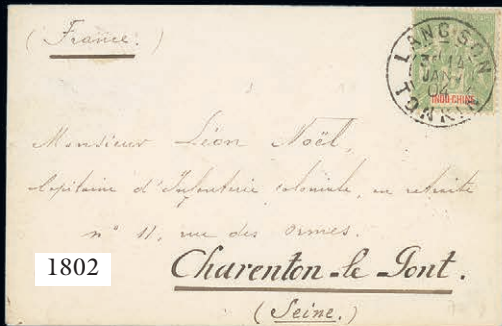 (France.)
LANG-SON
14
JANV
04
TONKIN
INDO-CHINE
Monsieur Léon Noël,
Capitaine d'Infanterie coloniale, en retraite
n° 11, rue des Ormes.
1802
Charenton-le-Pont.
(Seine.)